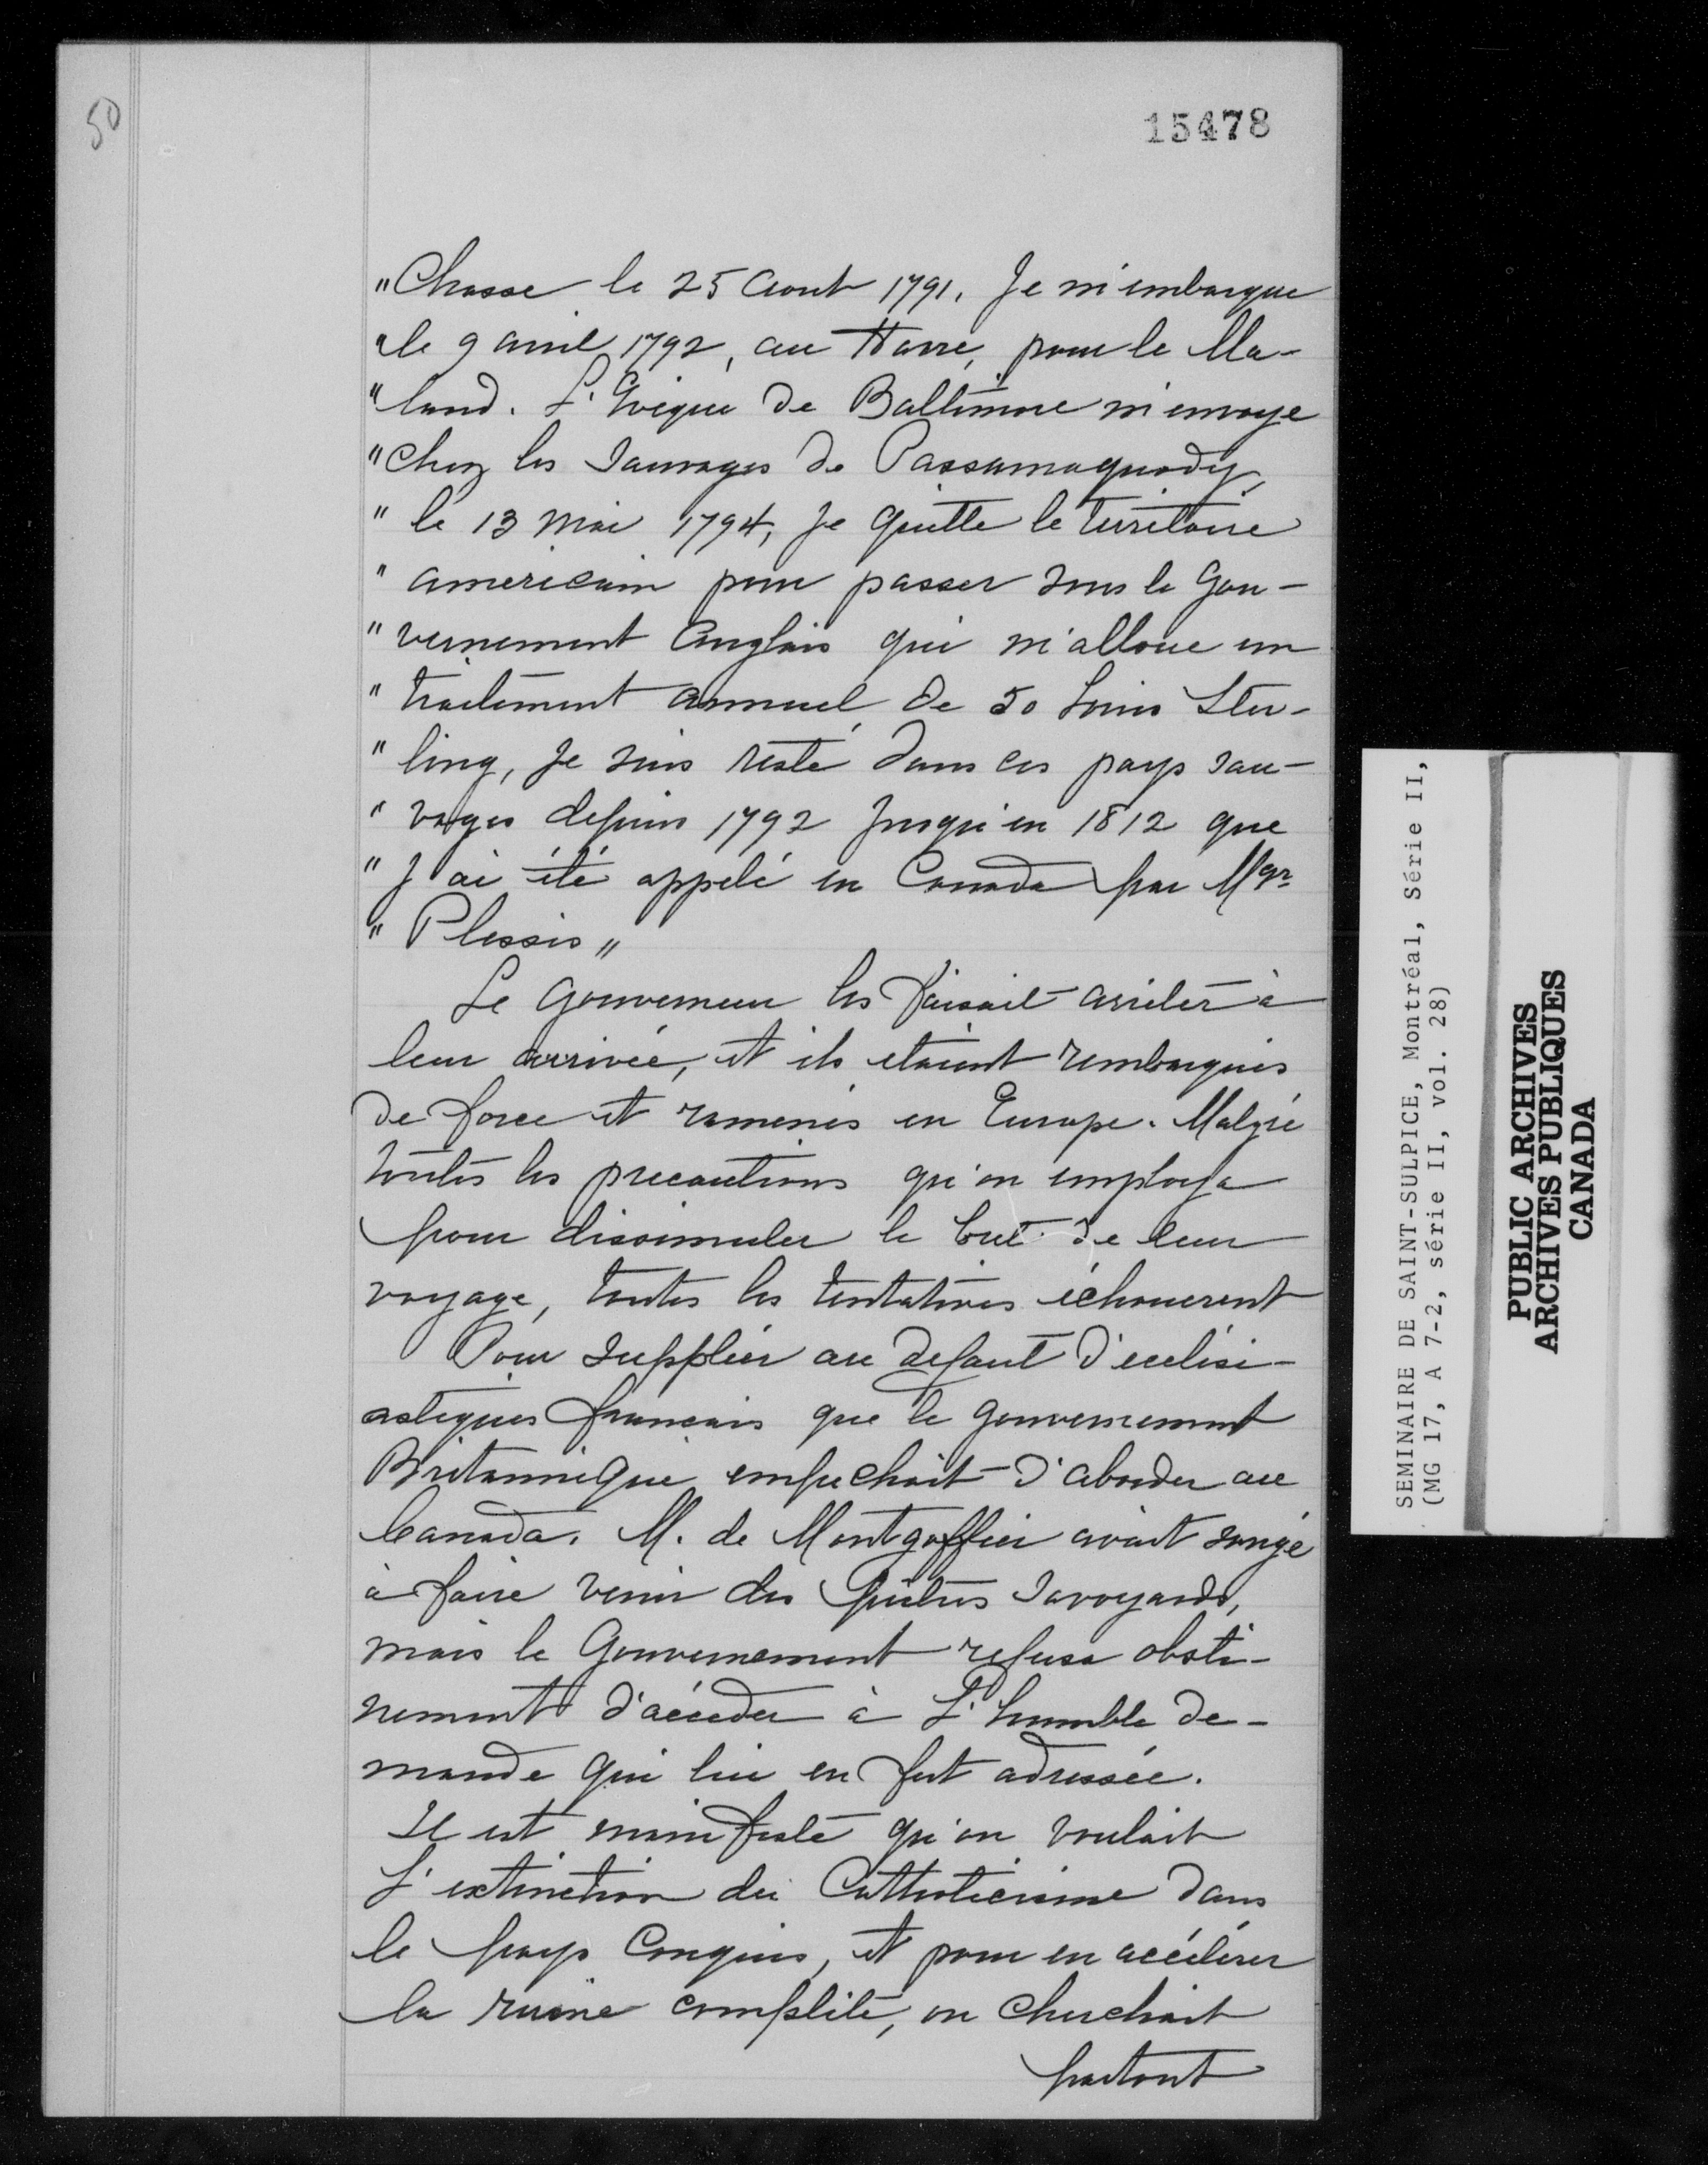 50
15478
"Chasse le 25 Aout 1791. Je m'embarque
"le 9 avril 1792, au Havre, pour le Ma-
"land. L'Evêque de Baltimore m'envoye
"chez les Sauvages de Passamaquody,
" le 13 Mai 1794, je quitte le territoire
" americain pour passer sous le Gou-
" vernement Anglais qui m'alloue un
" traitement annuel de 50 Louis Ster-
" ling, je suis resté dans ces pays sau-
" vages depuis 1792 jusqu'en 1812 que
" J'ai été appelé en Canada par Mgr
" Plessis "
Le Gouverneur les faisait arrêter à
leur arrivée, et ils etaient rembarqués
de force et ramenés en Europe. Malgré
toutes les precautions qu'on employa
pour dissimuler le but de leur
voyage, toutes les tentatives échouerent
Pour suppléer au defaut d'eclési-
astiques francais que le gouvernement
Britannique empechait d'aborder au
Canada. M. de Montgolfier avait songé
à faire venir des Prêtres Savoyards,
mais le Gouvernement refusa obsti-
nement d'accéder à L'humble de-
mande qui lui en fut adressée.
Il est manifeste qu'on voulait
L'extinction du Catholicisme dans
le pays Conquis, et pour en accélérer
la ruine complète, on cherchait
partout
SEMINAIRE DE SAINT-SULPICE, Montréal, Série II,
(MG 17, A 7-2, série II, vol. 28)
PUBLIC ARCHIVES
ARCHIVES PUBLIQUES
CANADA